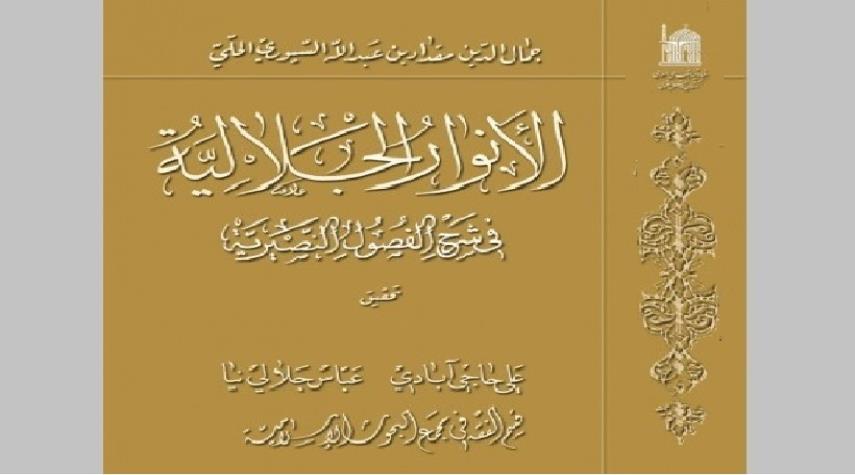 جمال الدين مقداد بن عبد الله السيوري الحلي
الأنوار الجلالية
في شرح الفصول النصيرية
تحقيق
علي حاجي آبادي عباس جلالي نيا
قسم الفقه في مجمع البحوث الإسلامية